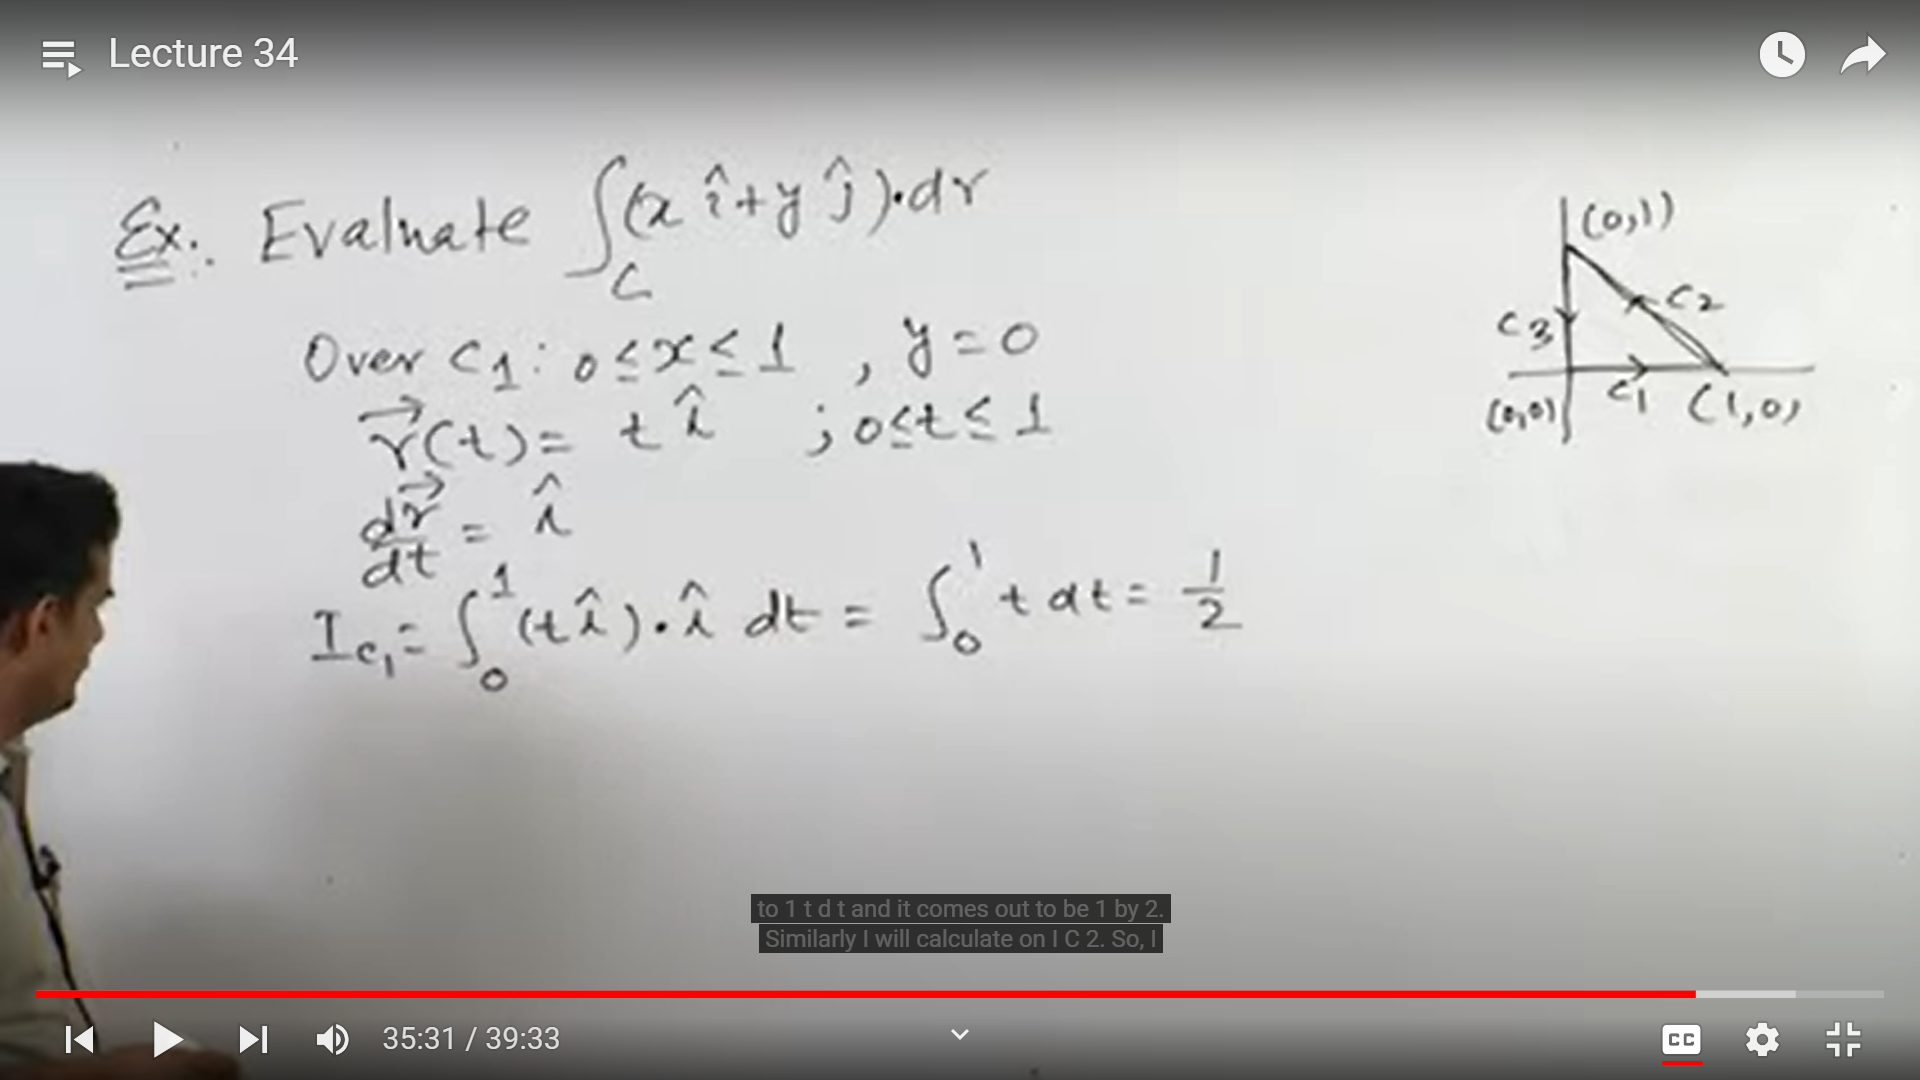 Lecture 34
Ex.: Evaluate ∫_C (x î + y ĵ)·dr
Over C1: 0 ≤ x ≤ 1 , y = 0
r⃗(t) = t î ; 0 ≤ t ≤ 1
dr⃗/dt = î
I_C1 = ∫_0^1 (t î)·î dt = ∫_0^1 t dt = 1/2
(0,1)
C2
C3
C1
(0,0)
(1,0)
to 1 t d t and it comes out to be 1 by 2.
Similarly I will calculate on I C 2. So, I
35:31 / 39:33
CC